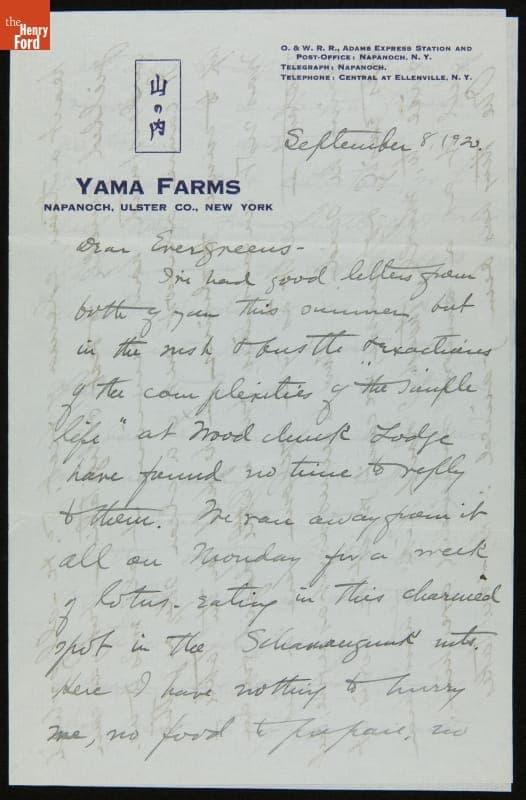 the
Henry
Ford
O. & W. R. R., Adams Express Station and
Post-Office: Napanoch, N. Y.
Telegraph: Napanoch.
Telephone: Central at Ellenville, N. Y.
山
の
内
Yama Farms
Napanoch, Ulster Co., New York
September 8, 1920.
Dear Evergreens-
I've had good letters from
both of you this summer but
in the rush & bustle & exactions
of the complexities of "the simple
life" at Woodchuck Lodge
have found no time to reply
to them. We ran away from it
all on Monday for a week
of lotus-eating in this charmed
spot in the mts.
Here I have nothing to hurry
me, no food to prepare, no